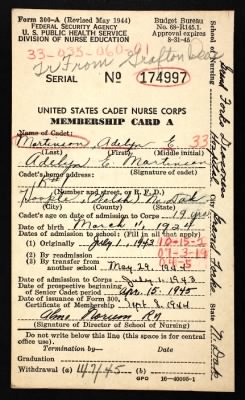 Form 300-A (Revised May 1944)
FEDERAL SECURITY AGENCY
U. S. PUBLIC HEALTH SERVICE
DIVISION OF NURSE EDUCATION
Budget Bureau
No. 68-R145.1.
Approval expires
8-31-45
33-035-060-01
Tr From Grafton
SERIAL No 174997
UNITED STATES CADET NURSE CORPS
MEMBERSHIP CARD A
Name of Cadet: 33
Martinson Adelyn E.
(Last) (First) (Middle initial)
Adelyn E. Martinson
Cadet's home address: (Signature of cadet)
(Number and street, or R. F. D.)
Hoople, (Walsh) N. Dak
(City) (County) (State)
Cadet's age on date of admission to Corps 19 years
Date of birth March 1, 1924
Date of admission to school: (Fill in all that apply)
(1) Originally July 1, 1943
(2) By readmission
(3) By transfer from another school May 29, 1944
Date of admission to Corps July 1, 1943
Date of prospective beginning of Senior Cadet period Apr. 15, 1945
Date of issuance of Form 300, Certificate of Membership Sept. 8, 1944
RN
(Signature of Director of School of Nursing)
Do not write below this line (this space is for central office use).
Termination by— Date
Graduation
Withdrawal
GPO 16-40066-1
School of Nursing Grand Forks Deaconess
Hospital
Grand Forks
State N. Dak